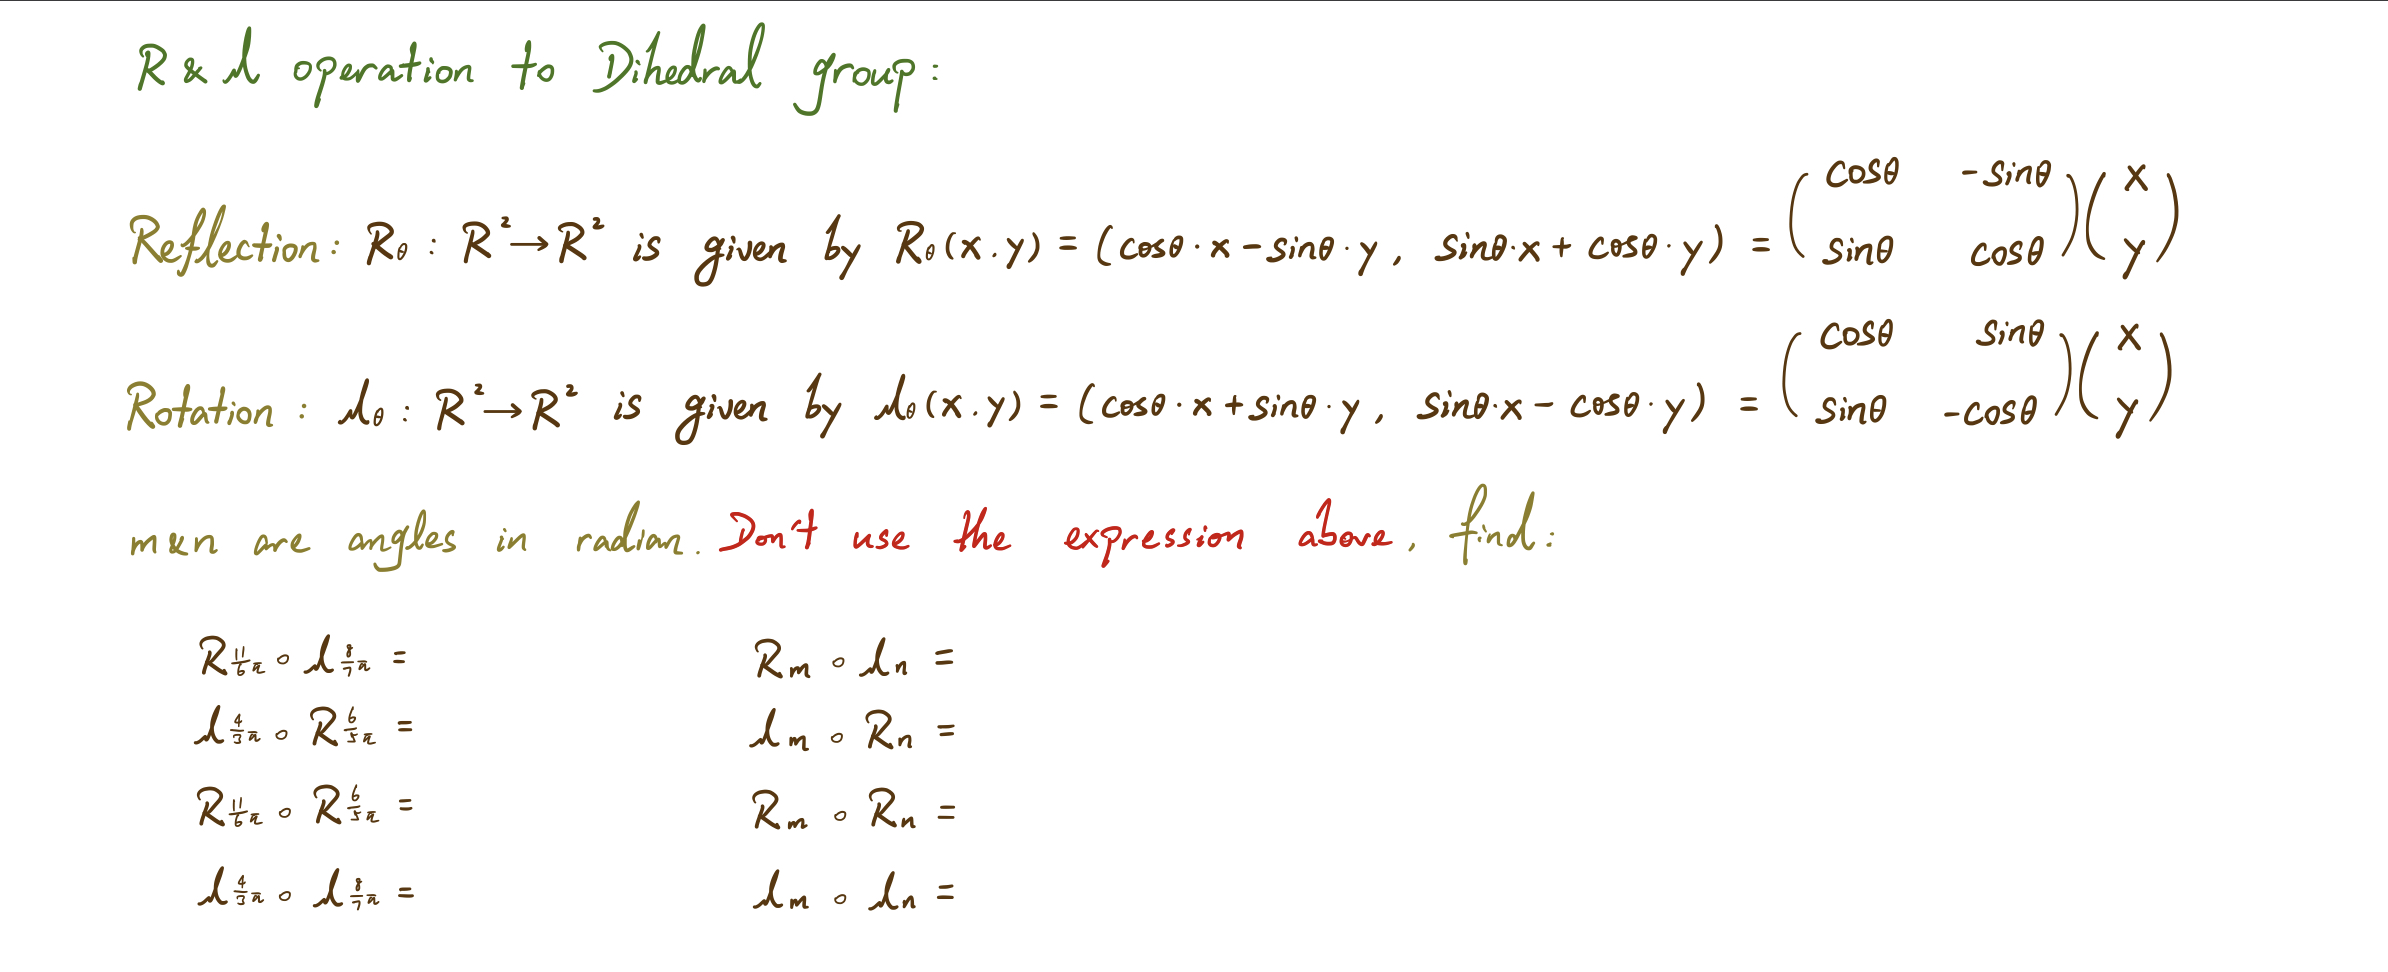 R & l operation to Dihedral group:
Reflection: Rθ : R² → R² is given by Rθ(x.y) = (cosθ · x − sinθ · y, sinθ·x + cosθ · y) = (cosθ -sinθ sinθ cosθ)(x y)
Rotation: lθ : R² → R² is given by lθ(x.y) = (cosθ · x + sinθ · y, sinθ·x − cosθ · y) = (cosθ sinθ sinθ -cosθ)(x y)
m&n are angles in radian. Don't use the expression above, find:
R 11/6 π ∘ l 8/7 π = Rm ∘ ln =
l 4/3 π ∘ R 6/5 π = lm ∘ Rn =
R 11/6 π ∘ R 6/5 π = Rm ∘ Rn =
l 4/3 π ∘ l 8/7 π = lm ∘ ln =